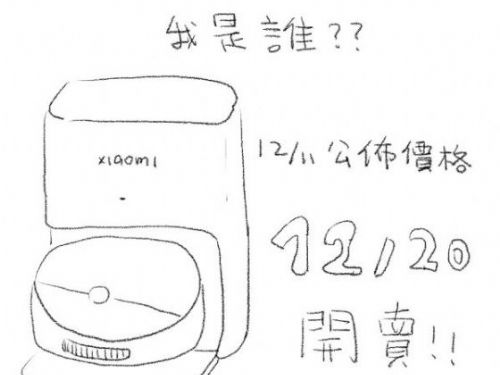 我是誰??
xiaomi
12/11公佈價格
12/20
開賣!!